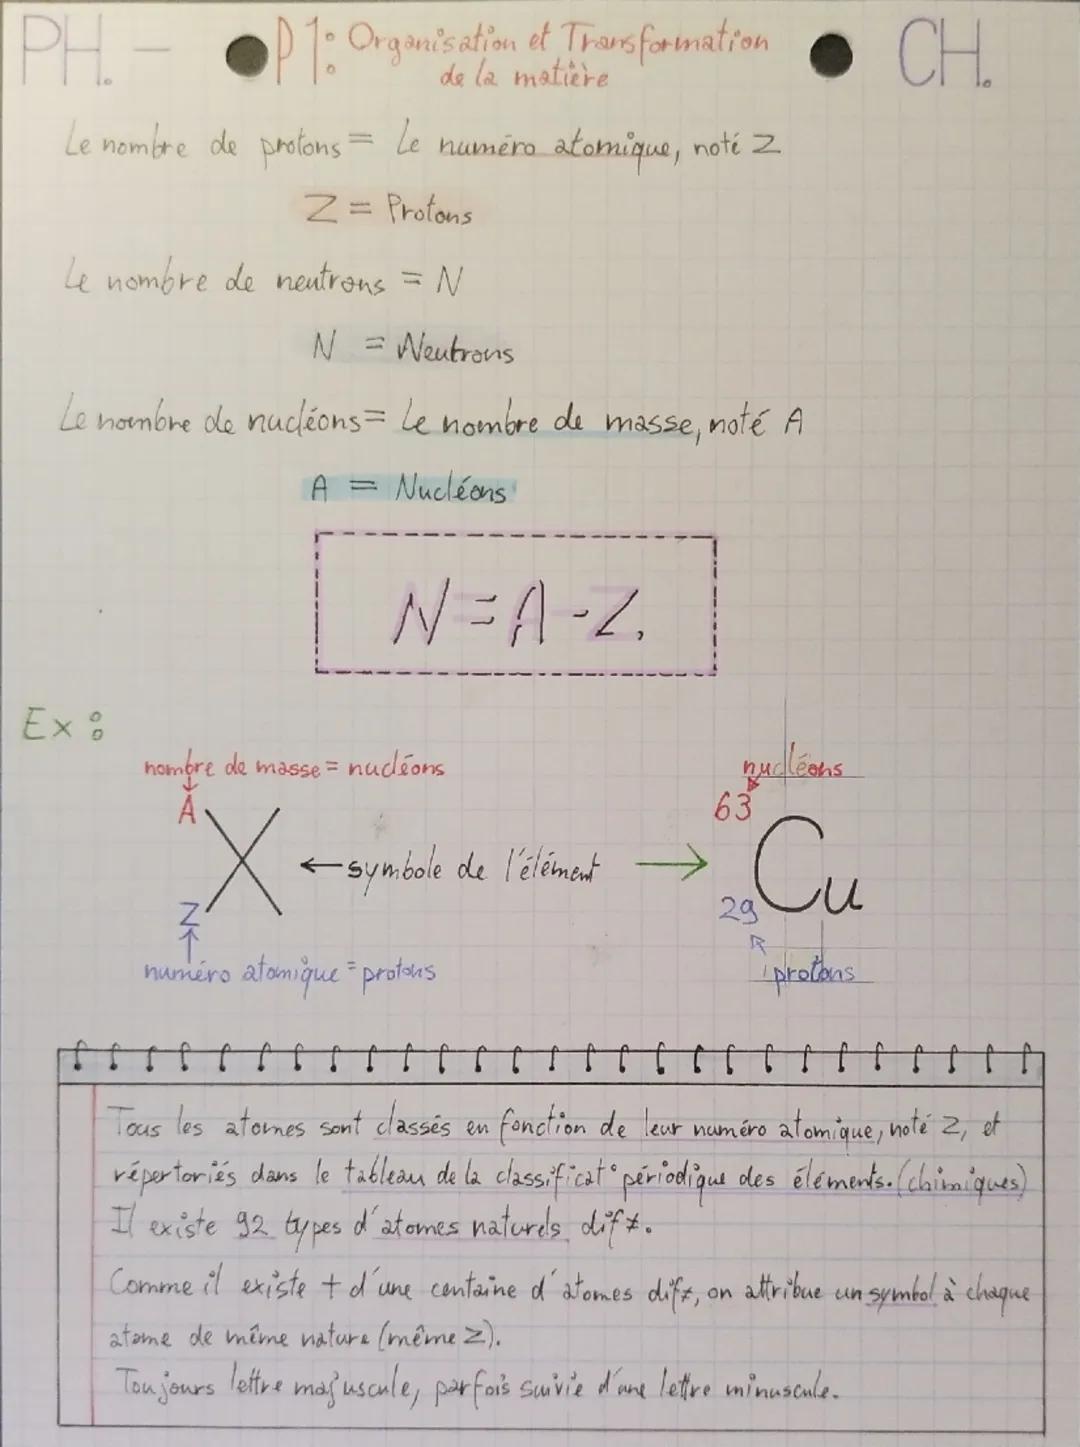 PH. - P1: Organisation et Transformation CH.
de la matière
Le nombre de protons = Le numéro atomique, noté Z
Z = Protons
Le nombre de neutrons = N
N = Neutrons
Le nombre de nucléons = Le nombre de masse, noté A
A = Nucléons
N = A - Z.
Ex :
nombre de masse = nucléons
nucléons
A
63
X ← symbole de l'élément → Cu
Z
29
numéro atomique = protons
protons
Tous les atomes sont classés en fonction de leur numéro atomique, noté Z, et
répertoriés dans le tableau de la classificat° périodique des éléments. (chimiques)
Il existe 92 types d'atomes naturels dif≠.
Comme il existe + d'une centaine d'atomes dif≠, on attribue un symbol à chaque
atome de même nature (même Z).
Toujours lettre majuscule, parfois suivie d'une lettre minuscule.